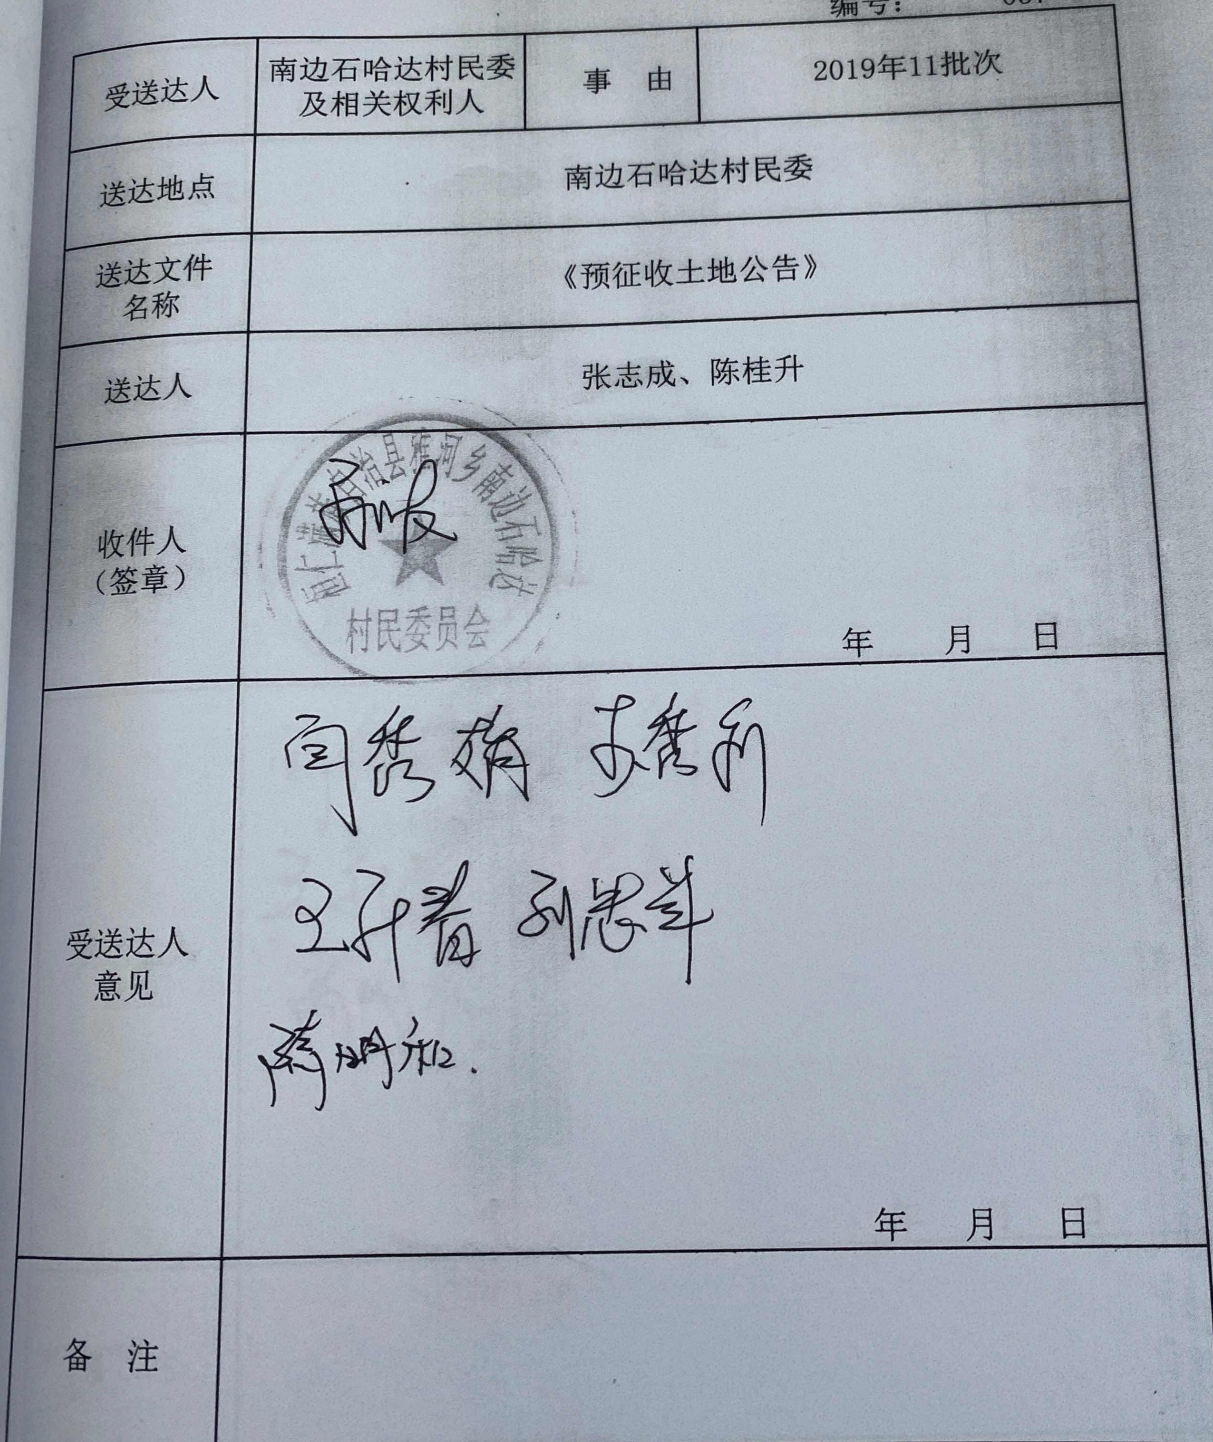 编号：
受送达人
南边石哈达村民委
及相关权利人
事 由
2019年11批次
送达地点
南边石哈达村民委
送达文件
名称
《预征收土地公告》
送达人
张志成、陈桂升
收件人
（签章）
自治县雅河乡南边石哈达
村民委员会
年 月 日
受送达人
意见
闫秀娟 李秀利
王升青 刘忠祥
隋明和.
年 月 日
备 注